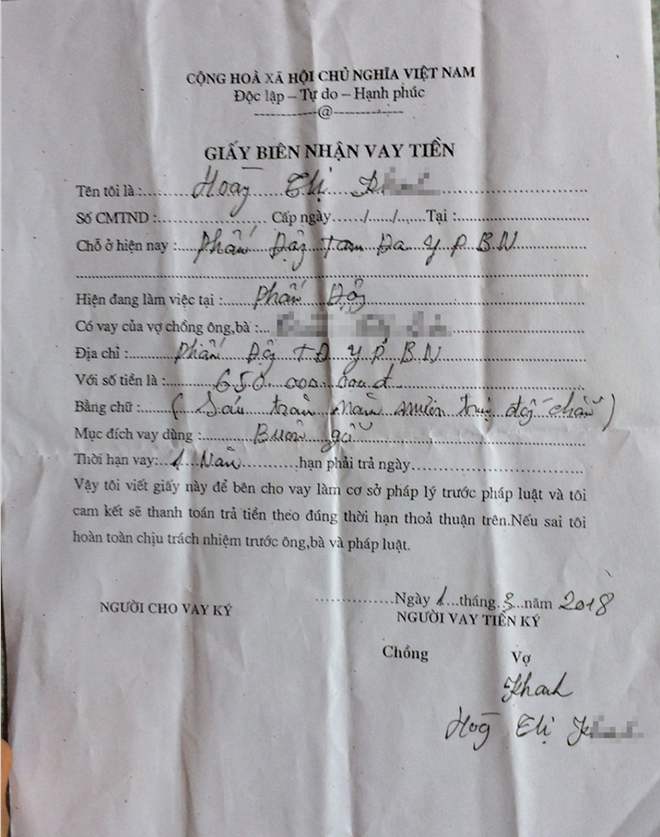 CỘNG HOÀ XÃ HỘI CHỦ NGHĨA VIỆT NAM
Độc lập – Tự do – Hạnh phúc
------------@------------
GIẤY BIÊN NHẬN VAY TIỀN
Tên tôi là :..... Hoàng Thị
Số CMTND :.................... Cấp ngày ...../...../...... Tại :........................
Chỗ ở hiện nay : Phấn Động Tam Đa Y P. B.N
Hiện đang làm việc tại :..... Phấn Động
Có vay của vợ chồng ông,bà :
Địa chỉ : Phấn Động TĐ Y P. B N
Với số tiền là : 650 000 000đ
Bằng chữ : ( Sáu trăm năm mươi triệu đồng chẵn )
Mục đích vay dùng : Buôn gỗ
Thời hạn vay: 1 Năm ............hạn phải trả ngày........................
Vậy tôi viết giấy này để bên cho vay làm cơ sở pháp lý trước pháp luật và tôi
cam kết sẽ thanh toán trả tiền theo đúng thời hạn thoả thuận trên.Nếu sai tôi
hoàn toàn chịu trách nhiệm trước ông,bà và pháp luật.
..............Ngày 1...tháng.3.năm 2018
NGƯỜI CHO VAY KÝ NGƯỜI VAY TIỀN KÝ
Chồng Vợ
Khanh
Hoàng Thị